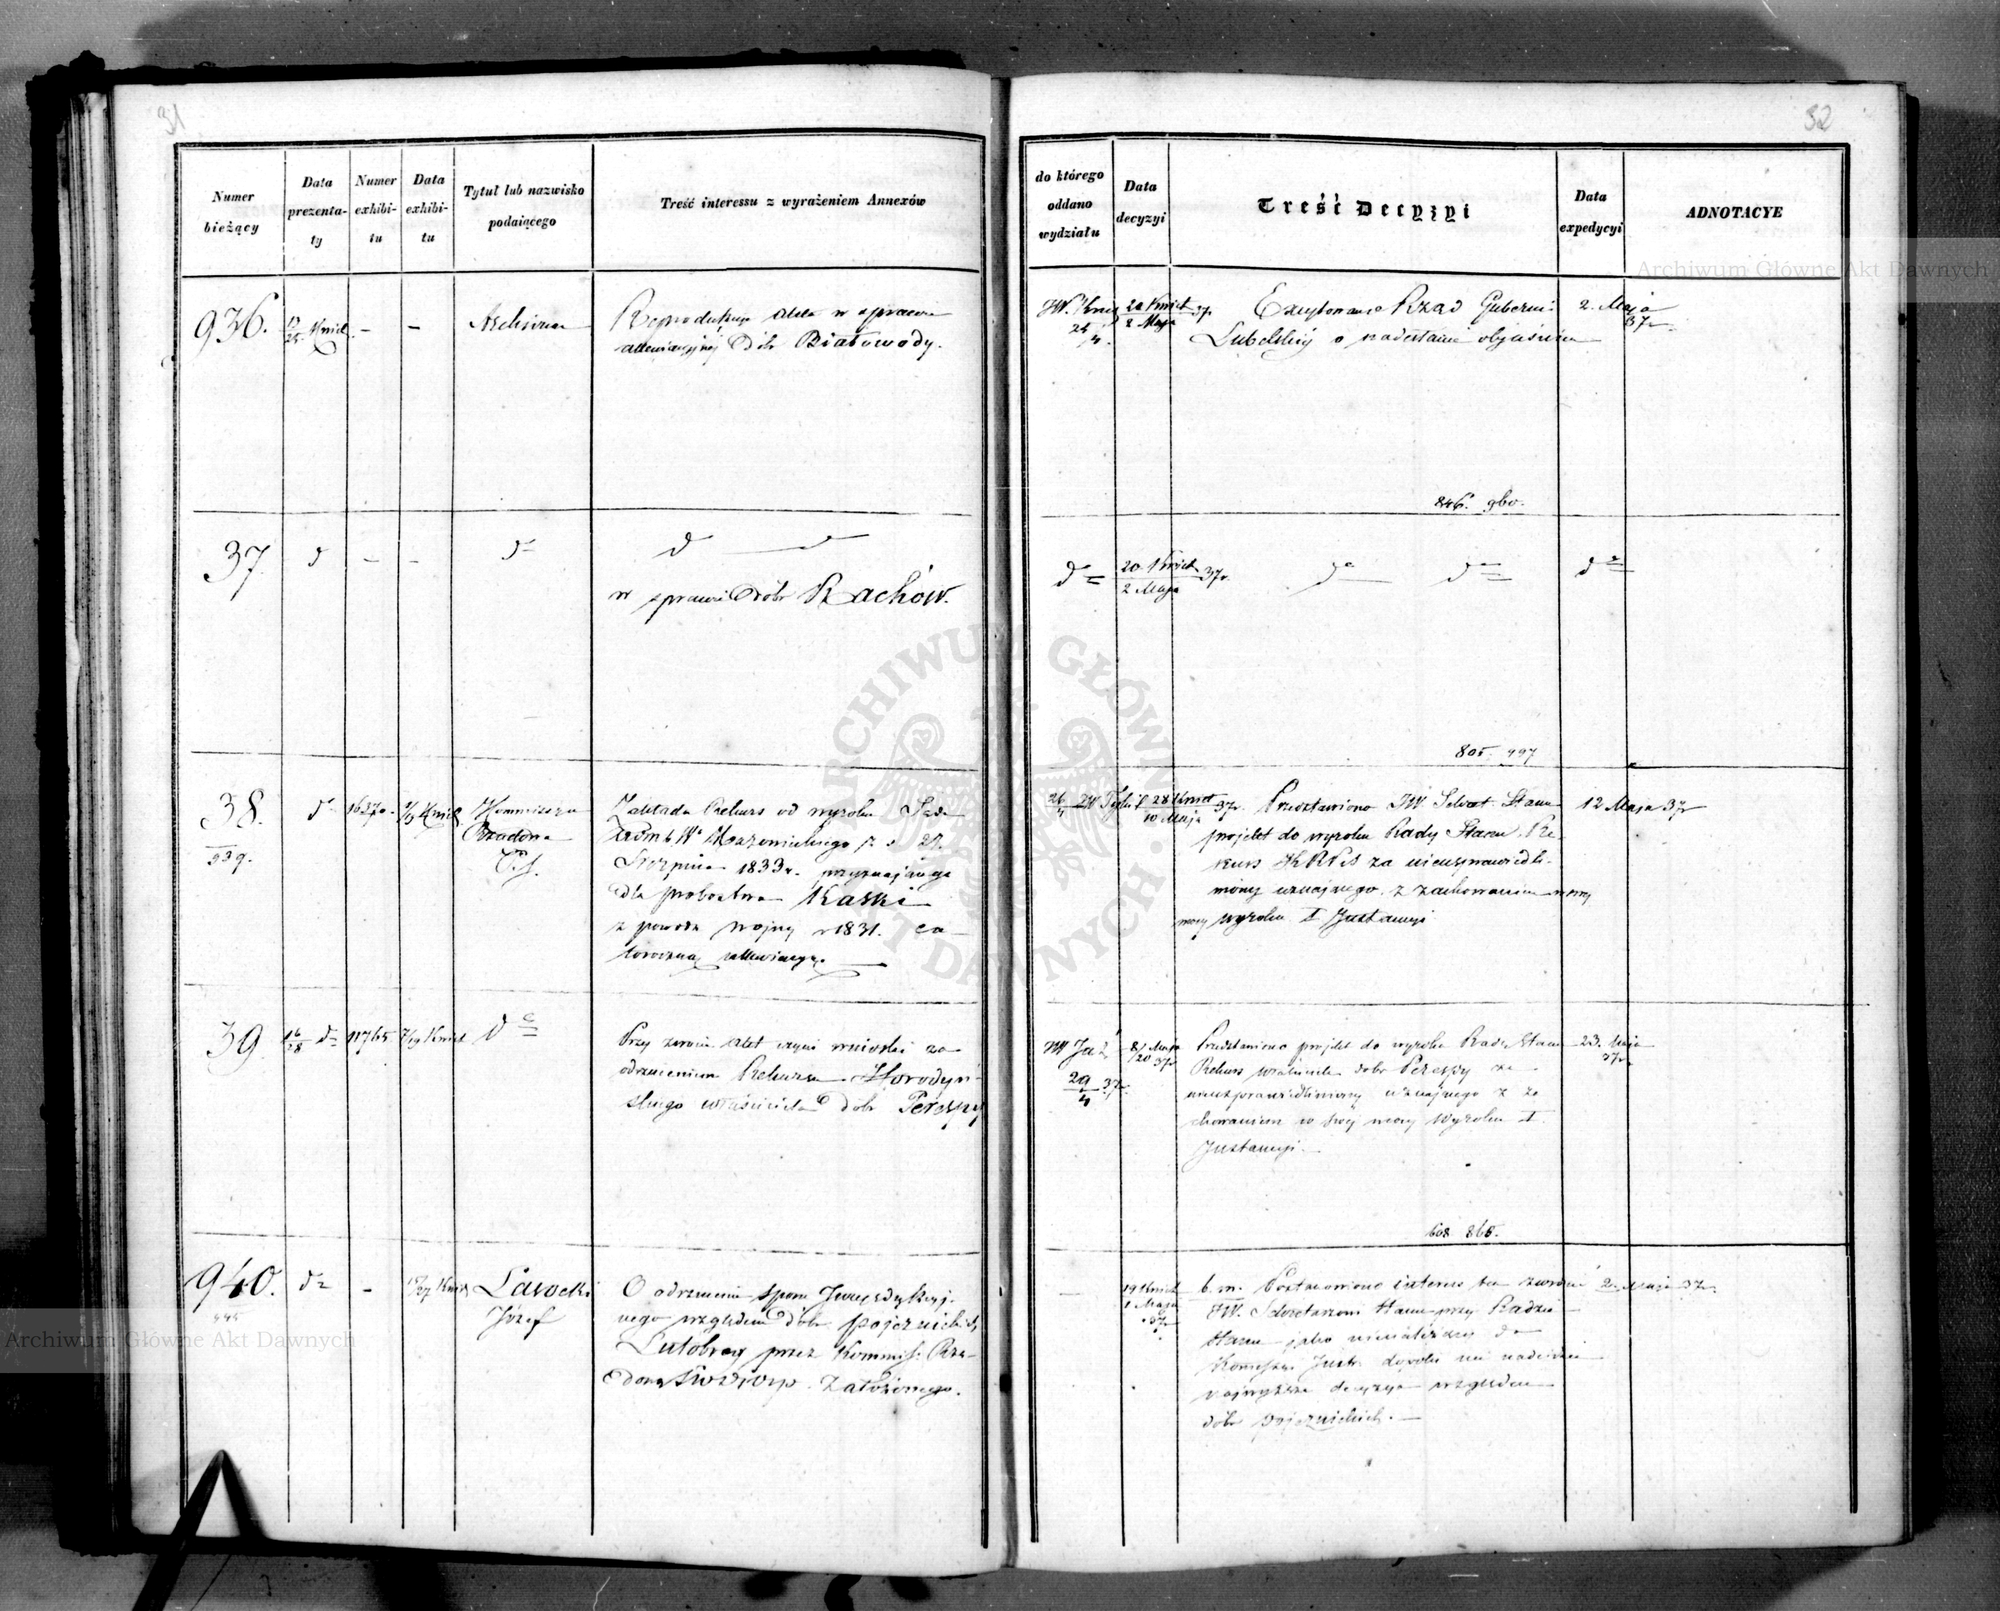 31
Numer bieżący
Data prezentaty
Numer exhibitu
Data exhibitu
Tytuł lub nazwisko podaiącego
Treść interessu z wyrażeniem Annexów
936.
Kwiet.
–
–
Archiwum
Reprodukuje akta w sprawie
allewiacyjnej Dóbr Białowody.
37.
d
–
–
d
d
w sprawie Dóbr Rachów.
38.
939.
d
Kwiet
Kommissya
Rządowa
Zakłada Rekurs od wyroku Sądu
Mazowieckiego z d 27.
Sierpnia 1833 r. przyznającego
dla probostwa Kaski
z powodu wojny r 1831. ca-
łoroczną allewiacyę.
39.
16/28 d
11765
7/19 Kwiet
d
Przy zwrocie akt czyni wnioski za
odrzuceniem Rekursu Horodyń-
skiego właściciela dóbr Perespy
940.
d
–
15/27 Kwiet
Lasocki
Józef
O odrzucenie sporu Jurysdykcyj-
nego względem dóbr pojezuickich
Lutobrog przez Kommis: Rzą-
dową założonego.
32
do którego oddano wydziału
Data decyzyi
Treść Decyzyi
Data expedycyi
ADNOTACYE
20 Kwiet
2 Maja
37.
Excytowano Rząd Guberni
Lubelskiej o nadesłanie objaśnień
2. Maja
37 r.
846. 960.
d
20 Kwiet
2 Maja
37 r.
d
d
d
805. 997
26/4
28 Kwiet
10 Maja
37 r.
Przedstawiono JW Sekret. Stanu
projekt do wyroku Rady Stanu. Re-
kurs za nieusprawiedli-
wiony uznającego, z zachowaniem w swej
mocy wyroku I Instancyi
12 Maja 37 r
29/4 37 r.
8/20 Maja
37 r
Przedstawiono projekt do wyroku Rady Stanu
Rekurs właściciela dóbr Perespy za
nieusprawiedliwiony uznającego z za-
chowaniem w swej mocy wyroku I.
Instancyi.
23. Maja
37 r
608 865.
–
19 Kwiet
1 Maja
37 r
b. m. Postanowiono interes ten zwrócić
JW. Sekretarzowi Stanu przy Radzie
Stanu jako nienależący do
dopóki nie nadejdzie
najwyższa decyzya względem
dóbr pojezuickich.
2. Maja 37 r.
Archiwum Główne Akt Dawnych
Archiwum Główne Akt Dawnych
ARCHIWUM GŁÓWNE AKT DAWNYCH